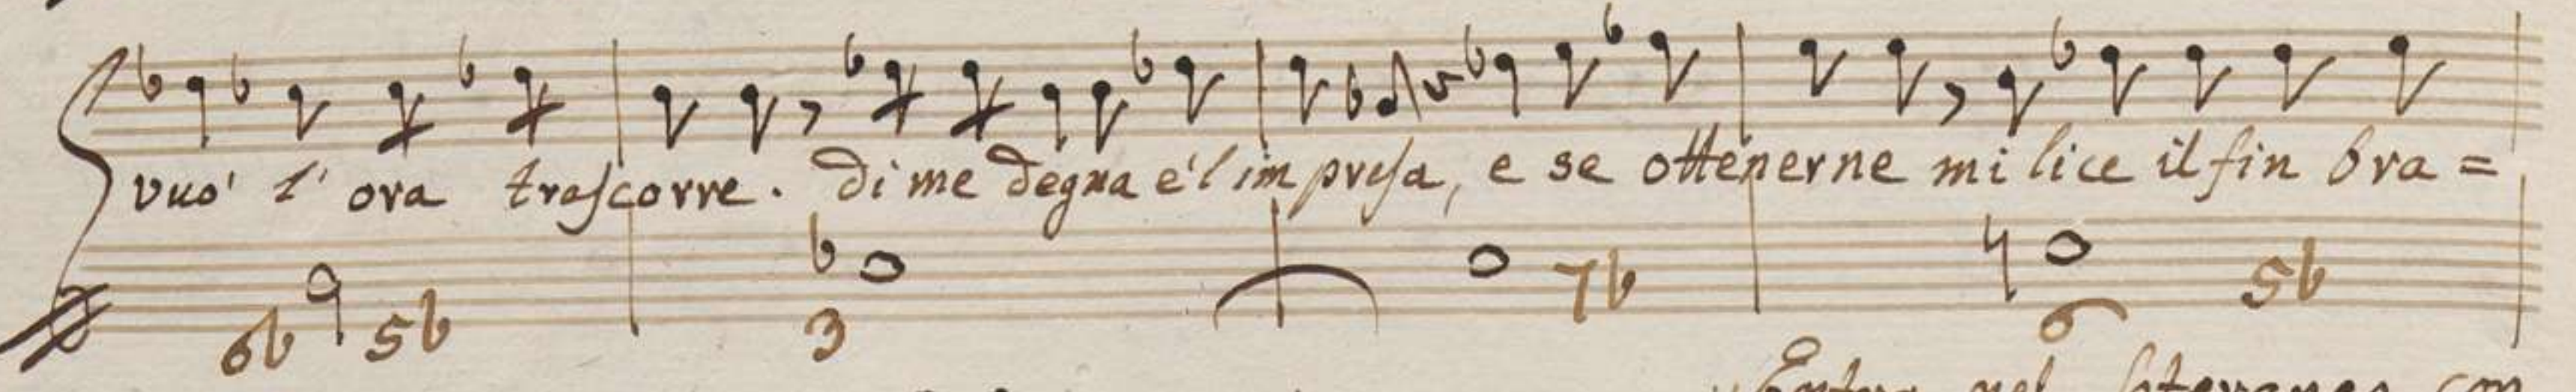 vuo' l' ora trascorre. Di me degna e'l impresa, e se ottenerne mi lice il fin bra=
6b 5b 3 7b 6 5b
Entra nel con